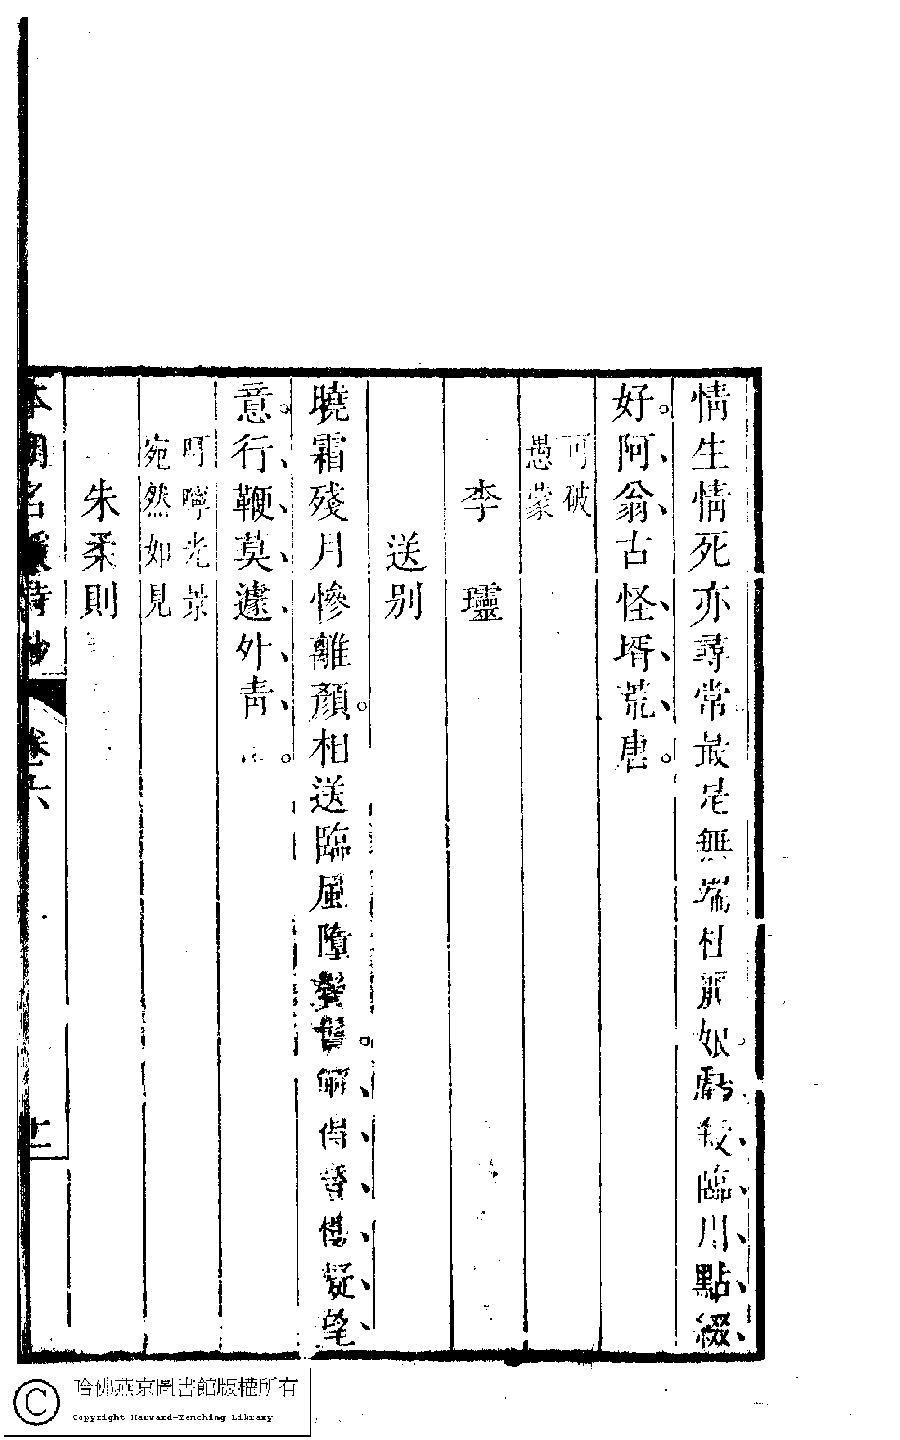 情生情死亦尋常最是無端杜麗娘虧殺臨川點綴
好阿翁古怪壻荒唐
可破
愚蒙
李𤫊
送別
曉霜殘月慘離顏相送臨風墮鬢鬟解得昔慣凝望
意行鞭莫遽外靑
叮嚀光景
宛然如見
朱柔則
本朝名媛詩鈔
卷六
十一
哈佛燕京圖書館版權所有
Copyright Harvard-Yenching Library